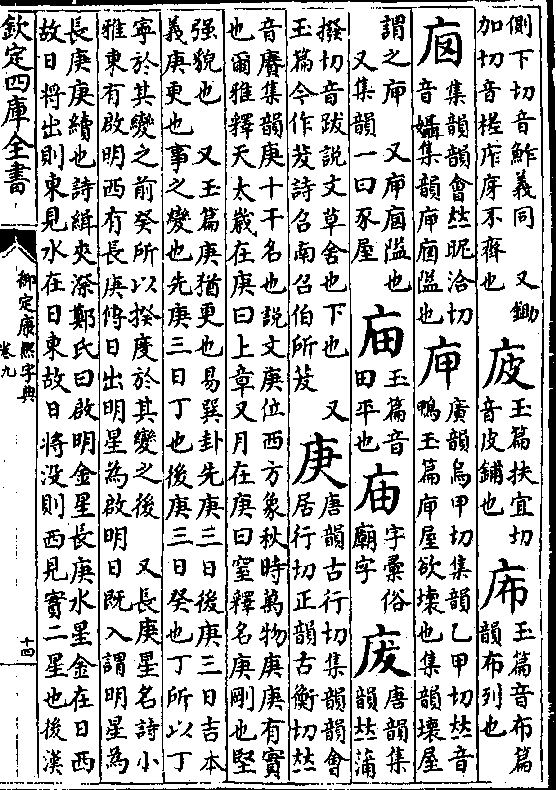 側下切音鮓義同　又鋤
加切音槎庌不齊也
玉篇扶宜切
音皮鋪也
玉篇音布篇
韻布列也
集韻韻會𠀤昵洽切
音集韻庘隘也
庘
廣韻烏甲切集韻乙甲切𠀤音
鴨玉篇庘屋欲壞也集韻壞屋
謂之庘　又庘隘也
又集韻一曰豕屋
玉篇音
田平也
庙
字彙俗
廟字
废
唐韻集
韻𠀤蒲
撥切音跋說文草舍也下也　又
玉篇今作茇詩召南召伯所茇
庚
唐韻古行切集韻韻會
居行切正韻古衡切𠀤
音賡集韻庚十干名也說文庚位西方象秋時萬物庚庚有實
也爾雅釋天太歲在庚曰上章又月在庚曰窒釋名庚剛也堅
强貌也　又玉篇庚猶更也易巽卦先庚三日後庚三日吉本
義庚更也事之變也先庚三日丁也後庚三日癸也丁所以丁
寧於其變之前癸所以揆度於其變之後　又長庚星名詩小
雅東有啟明西有長庚傳日出明星為啟明日既入謂明星為
長庚庚續也詩緝夾漈鄭氏曰啟明金星長庚水星金在日西
故日將出則東見水在日東故日將没則西見實二星也後漢
欽定四庫全書
御定康熙字典
卷九
十四